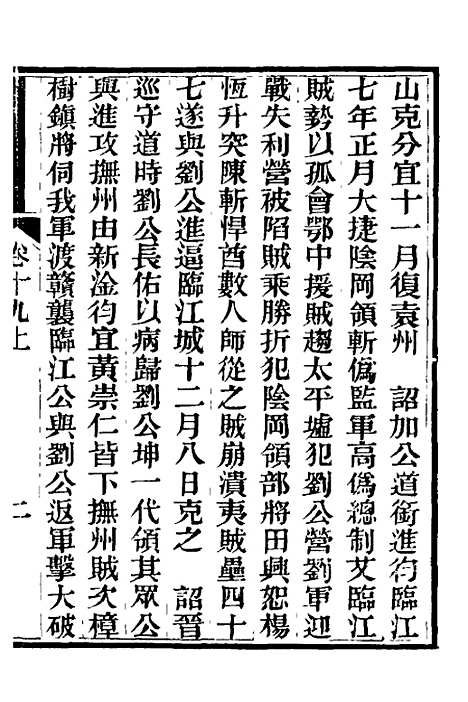 山克分宜十一月復袁州　詔加公道銜進徇臨江
七年正月大捷陰岡領斬僞監軍高僞總制艾臨江
賊勢以孤會鄂中援賊趨太平墟犯劉公營劉軍迎
戰失利營被陷賊乘勝折犯陰岡領部將田興恕楊
恆升突陳斬悍酋數人師從之賊崩潰夷賊壘四十
七遂與劉公進逼臨江城十二月八日克之　詔晉
巡守道時劉公長佑以病歸劉公坤一代領其眾公
與進攻撫州由新淦徇宜黃崇仁皆下撫州賊次樟
樹鎮將伺我軍渡贛襲臨江公與劉公返軍擊大破
卷十九上
二